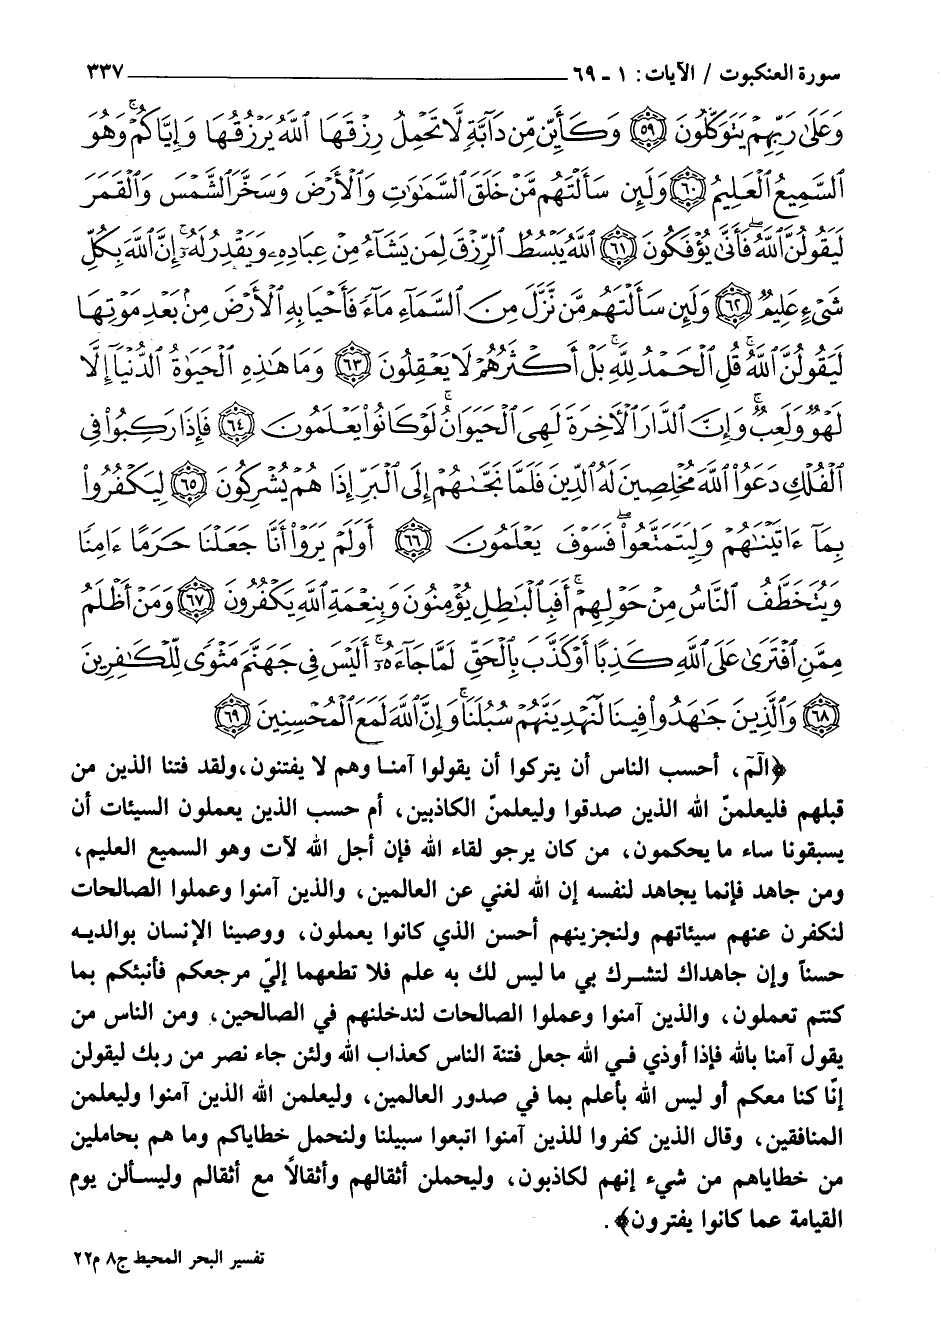 سورة العنكبوت / الآيات: ١ ـ ٦٩ ٣٣٧
وَعَلَىٰ رَبِّهِمْ يَتَوَكَّلُونَ ﴿٥٩﴾ وَكَأَيِّن مِّن دَآبَّةٍ لَّا تَحْمِلُ رِزْقَهَا ٱللَّهُ يَرْزُقُهَا وَإِيَّاكُمْ ۚ وَهُوَ
ٱلسَّمِيعُ ٱلْعَلِيمُ ﴿٦٠﴾ وَلَئِن سَأَلْتَهُم مَّنْ خَلَقَ ٱلسَّمَٰوَٰتِ وَٱلْأَرْضَ وَسَخَّرَ ٱلشَّمْسَ وَٱلْقَمَرَ
لَيَقُولُنَّ ٱللَّهُ ۖ فَأَنَّىٰ يُؤْفَكُونَ ﴿٦١﴾ ٱللَّهُ يَبْسُطُ ٱلرِّزْقَ لِمَن يَشَآءُ مِنْ عِبَادِهِۦ وَيَقْدِرُ لَهُۥٓ ۚ إِنَّ ٱللَّهَ بِكُلِّ
شَىْءٍ عَلِيمٌ ﴿٦٢﴾ وَلَئِن سَأَلْتَهُم مَّن نَّزَّلَ مِنَ ٱلسَّمَآءِ مَآءً فَأَحْيَا بِهِ ٱلْأَرْضَ مِنۢ بَعْدِ مَوْتِهَا
لَيَقُولُنَّ ٱللَّهُ ۚ قُلِ ٱلْحَمْدُ لِلَّهِ ۚ بَلْ أَكْثَرُهُمْ لَا يَعْقِلُونَ ﴿٦٣﴾ وَمَا هَٰذِهِ ٱلْحَيَوٰةُ ٱلدُّنْيَآ إِلَّا
لَهْوٌ وَلَعِبٌ ۚ وَإِنَّ ٱلدَّارَ ٱلْأَخِرَةَ لَهِىَ ٱلْحَيَوَانُ ۚ لَوْ كَانُوا۟ يَعْلَمُونَ ﴿٦٤﴾ فَإِذَا رَكِبُوا۟ فِى
ٱلْفُلْكِ دَعَوُا۟ ٱللَّهَ مُخْلِصِينَ لَهُ ٱلدِّينَ فَلَمَّا نَجَّىٰهُمْ إِلَى ٱلْبَرِّ إِذَا هُمْ يُشْرِكُونَ ﴿٦٥﴾ لِيَكْفُرُوا۟
بِمَآ ءَاتَيْنَٰهُمْ وَلِيَتَمَتَّعُوا۟ ۖ فَسَوْفَ يَعْلَمُونَ ﴿٦٦﴾ أَوَلَمْ يَرَوْا۟ أَنَّا جَعَلْنَا حَرَمًا ءَامِنًا
وَيُتَخَطَّفُ ٱلنَّاسُ مِنْ حَوْلِهِمْ ۚ أَفَبِٱلْبَٰطِلِ يُؤْمِنُونَ وَبِنِعْمَةِ ٱللَّهِ يَكْفُرُونَ ﴿٦٧﴾ وَمَنْ أَظْلَمُ
مِمَّنِ ٱفْتَرَىٰ عَلَى ٱللَّهِ كَذِبًا أَوْ كَذَّبَ بِٱلْحَقِّ لَمَّا جَآءَهُۥٓ ۚ أَلَيْسَ فِى جَهَنَّمَ مَثْوًى لِّلْكَٰفِرِينَ
﴿٦٨﴾ وَٱلَّذِينَ جَٰهَدُوا۟ فِينَا لَنَهْدِيَنَّهُمْ سُبُلَنَا ۚ وَإِنَّ ٱللَّهَ لَمَعَ ٱلْمُحْسِنِينَ ﴿٦٩﴾
﴿الَمَ، أحسب الناس أن يتركوا أن يقولوا آمنـا وهم لا يفتنون،ولقد فتنا الذين من
قبلهم فليعلمنّ الله الذين صدقوا وليعلمنّ الكاذبين، أم حسب الذين يعملون السيئات أن
يسبقونا ساء ما يحكمون، من كان يرجو لقاء الله فإن أجل الله لآت وهو السميع العليم،
ومن جاهد فإنما يجاهد لنفسه إن الله لغني عن العالمين، والذين آمنوا وعملوا الصالحات
لنكفرن عنهم سيئاتهم ولنجزينهم أحسن الذي كانوا يعملون، ووصينا الإنسان بوالديـه
حسناً وإن جاهداك لتشـرك بي ما ليس لك به علم فلا تطعهما إليّ مرجعكم فأنبئكم بما
كنتم تعملون، والذين آمنوا وعملوا الصالحات لندخلنهم في الصالحين، ومن الناس من
يقول آمنا بالله فإذا أوذي فـي الله جعل فتنة الناس كعذاب الله ولئن جاء نصر من ربك ليقولن
إنّا كنا معكم أو ليس الله بأعلم بما في صدور العالمين، وليعلمن الله الذين آمنوا وليعلمن
المنافقين، وقال الذين كفروا للذين آمنوا اتبعوا سبيلنا ولنحمل خطاياكم وما هم بحاملين
من خطاياهم من شيء إنهم لكاذبون، وليحملن أثقالهم وأثقالاً مع أثقالم وليسـألن يوم
القيامة عما كانوا يفترون﴾.
تفسير البحر المحيط ج٨ م٢٢